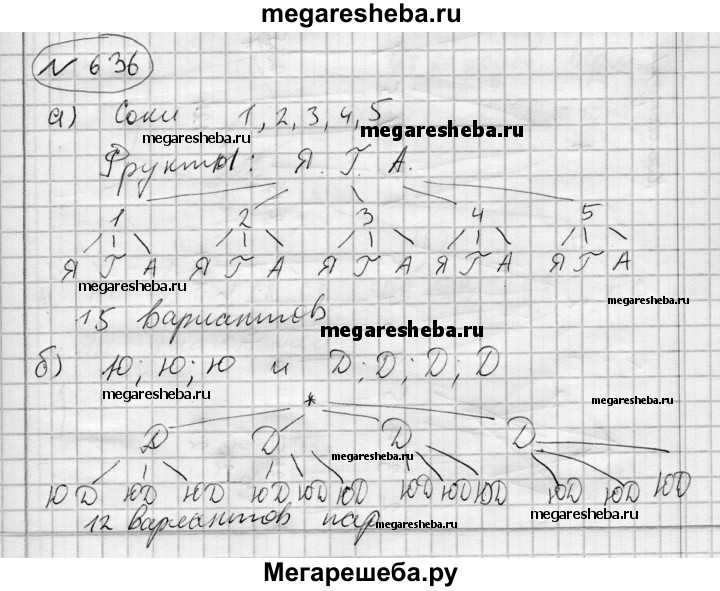 megaresheba.ru
№ 636
а) Соки 1, 2, 3, 4, 5
megaresheba.ru megaresheba.ru
Фрукты: Я. Г. А.
1 2 3 4 5
Я Г А Я Г А Я Г А Я Г А Я Г А
megaresheba.ru megaresheba.ru
15 вариантов
megaresheba.ru
б) Ю; Ю; Ю и Д; Д; Д; Д
megaresheba.ru megaresheba.ru
*
Д Д Д Д
megaresheba.ru megaresheba.ru
ЮД ЮД ЮД ЮД ЮД ЮД ЮД ЮД ЮД ЮД ЮД ЮД
12 вариантов пар
megaresheba.ru megaresheba.ru
Мегарешеба.ру